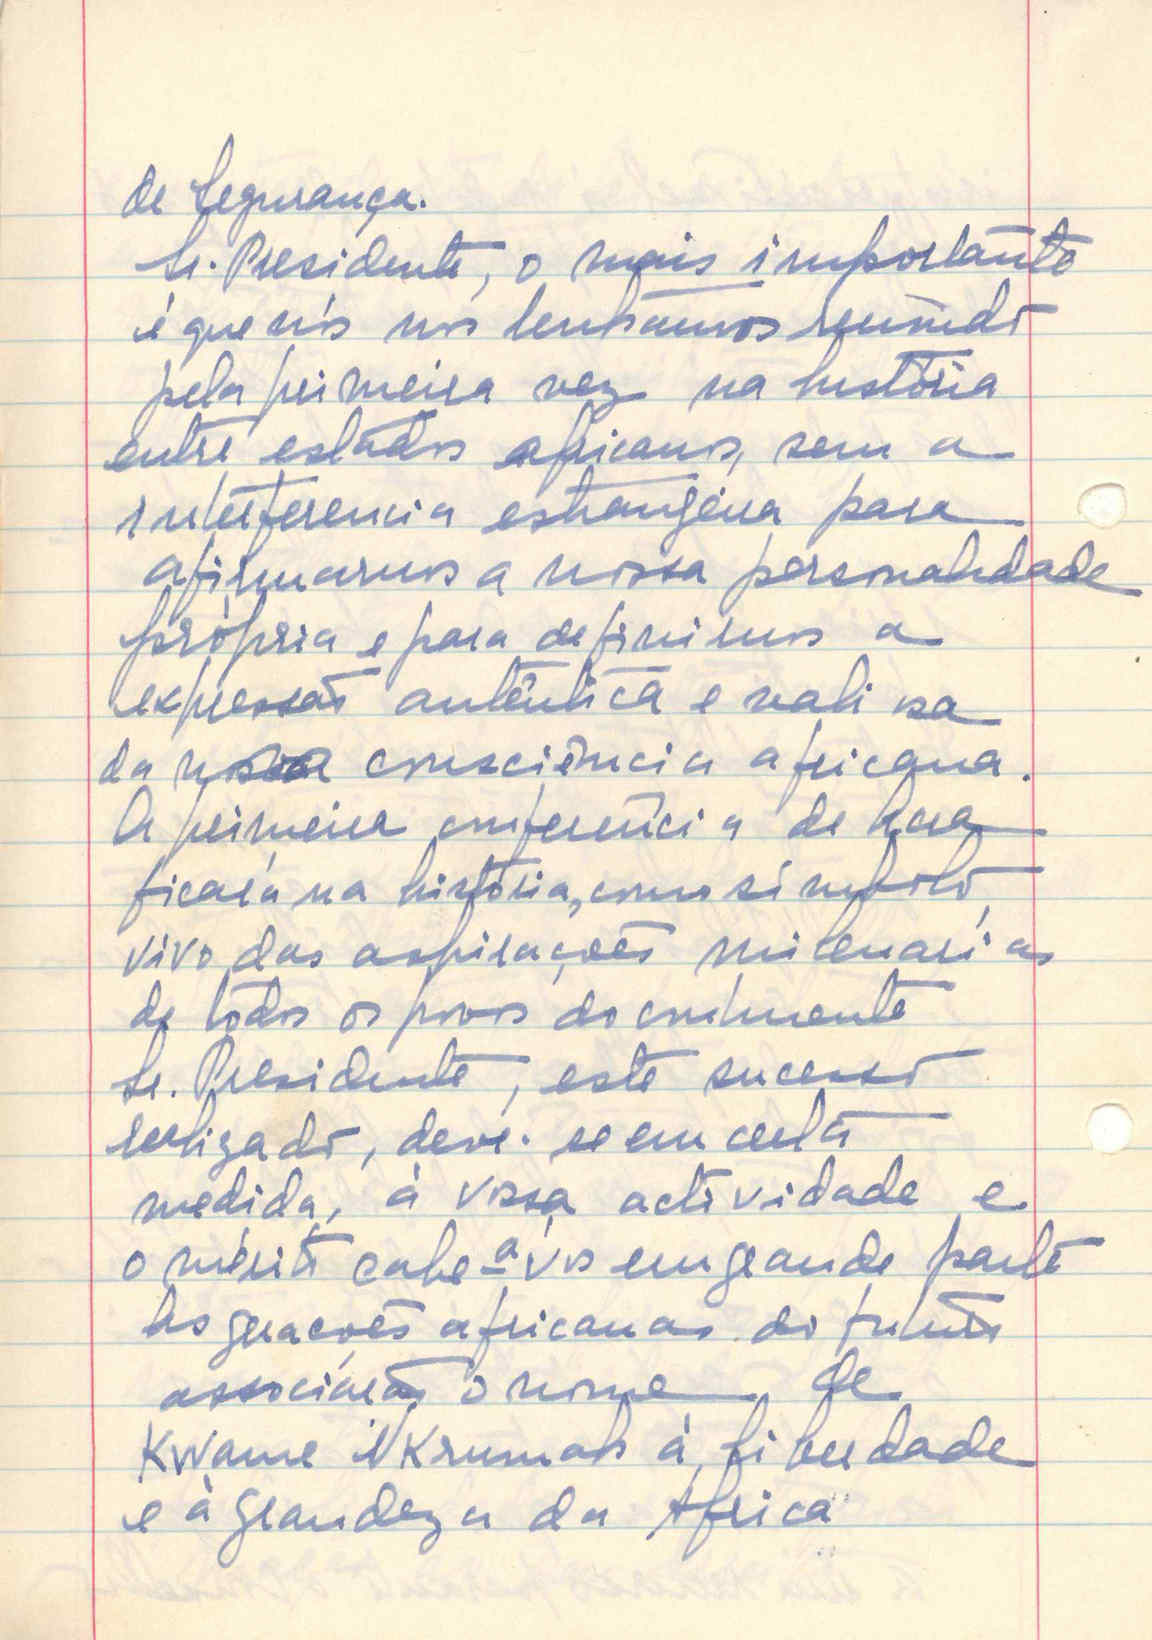 de Segurança.
Sr. Presidente, o mais importante
é que nós nos tenhamos reunido
pela primeira vez na história
entre estados africanos, sem a
interferencia estrangeira para
afirmarmos a nossa personalidade
própria e para definirmos a
expressão autêntica e valiosa
da nossa consciência africana.
A primeira conferência de Acra
ficará na história, como símbolo
vivo das aspirações milenarias
de todos os povos do continente
Sr. Presidente, este sucesso
realizado, deve-se em certa
medida, à vossa actividade e
o mérito cabe a vós em grande parte
As gerações africanas do futuro
associarão o nome de
Kwame NKrumah à liberdade
e à grandeza da Africa